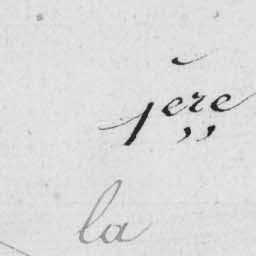 1ère
la